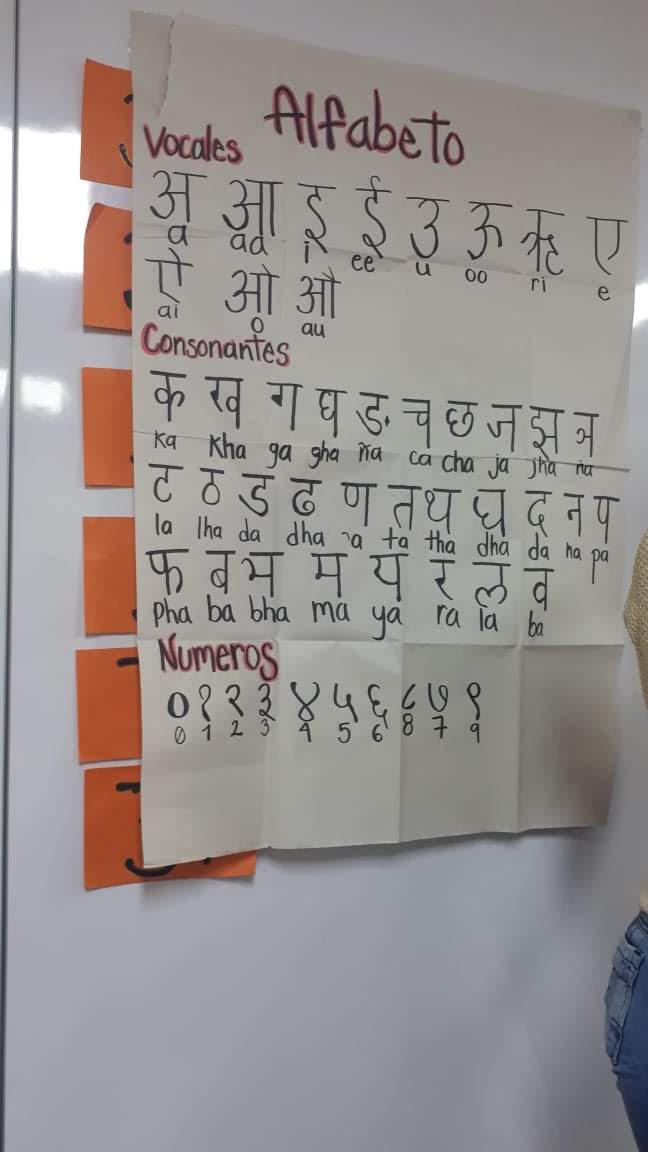 Alfabeto
Vocales
अ आ इ ई उ ऊ ऋ ए
a aa i ee u oo ri e
ऐ ओ औ
ai o au
Consonantes
क ख ग घ ङ च छ ज झ ञ
ka kha ga gha ña ca cha ja jha ña
ट ठ ड ढ ण त थ घ द न प
la lha da dha ta tha dha da ha pa
फ ब भ म य र ल व
pha ba bha ma ya ra la ba
Números
० १ २ ३ ४ ५ ६ ८ ७ ९
0 1 2 3 4 5 6 8 7 9